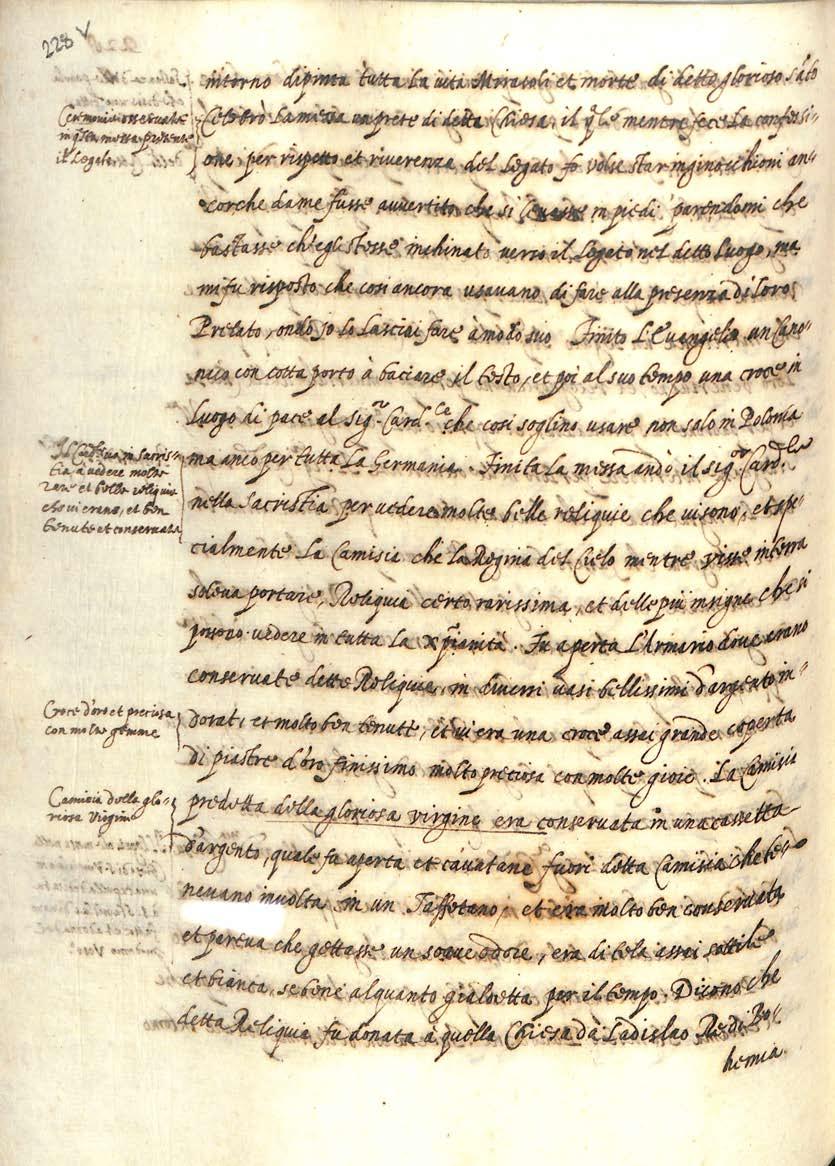 228 v
intorno dipinta tutta la vita Miracoli et morte di detto glorioso S.to
Celebrò la messa un prete di detta Chiesa, il q.le mentre fece la confessi-
one, per rispetto et riverenza del Legato so volse star inginocchioni an-
corche da me fusse avvertito che si levasse in piedi, parendomi che
bastasse ch'egli stesse inchinato verso il Legato nel detto luogo, ma
mi fu risposto che cosi ancora usavano di fare alla presenza di loro
Prelato, ond'io lo lasciai fare à modo suo. Finito l'Evangelio un Cano-
nico con cotta porto à baciare il testo, et poi al suo tempo una croce in
luogo di pace al sig.r Card.le che cosi soglino usare non solo in Polonia
ma anco per tutta la Germania. Finita la messa andò il sig.or Card.le
nella Sacristia per vedere molte belle reliquie che vi sono, et spe-
cialmente la Camisia che la Regina del Cielo mentre visse in terra
soleva portare, Reliquia certo rarissima, et delle più insigne che si
possono vedere in tutta la xpianità. Fu aperta l'Armario dove erano
conservate dette Reliquie, in diversi vasi bellissimi d'argento in-
dorati, et molto ben tenuti, et vi era una croce assai grande coperta
di piastre d'oro finissimo molto preciosa con molte gioie. La Camisia
predetta della gloriosa virgine era conservata in una cassetta
d'argento, quale fu aperta et cavatane fuori detta Camisia che te-
nevano involta in un Taffetano, et era molto ben conservata
et pareva che gettasse un soave odore, era di tela assai sottile
et bianca, se bene alquanto gialletta per il tempo. Dicono che
detta Reliquia fu donata à quella Chiesa da Ladislao Re di Bo-
hemia
Ceremonie osservate
in q.sta messa presente
il Legato
Il Card.le va in sacris-
tia a vedere molte
rare et belle reliquie
che vi erano, et ben
tenute et conservate
Croce d'oro et preciosa
con molte gemme
Camisia della glo-
riosa Virgine